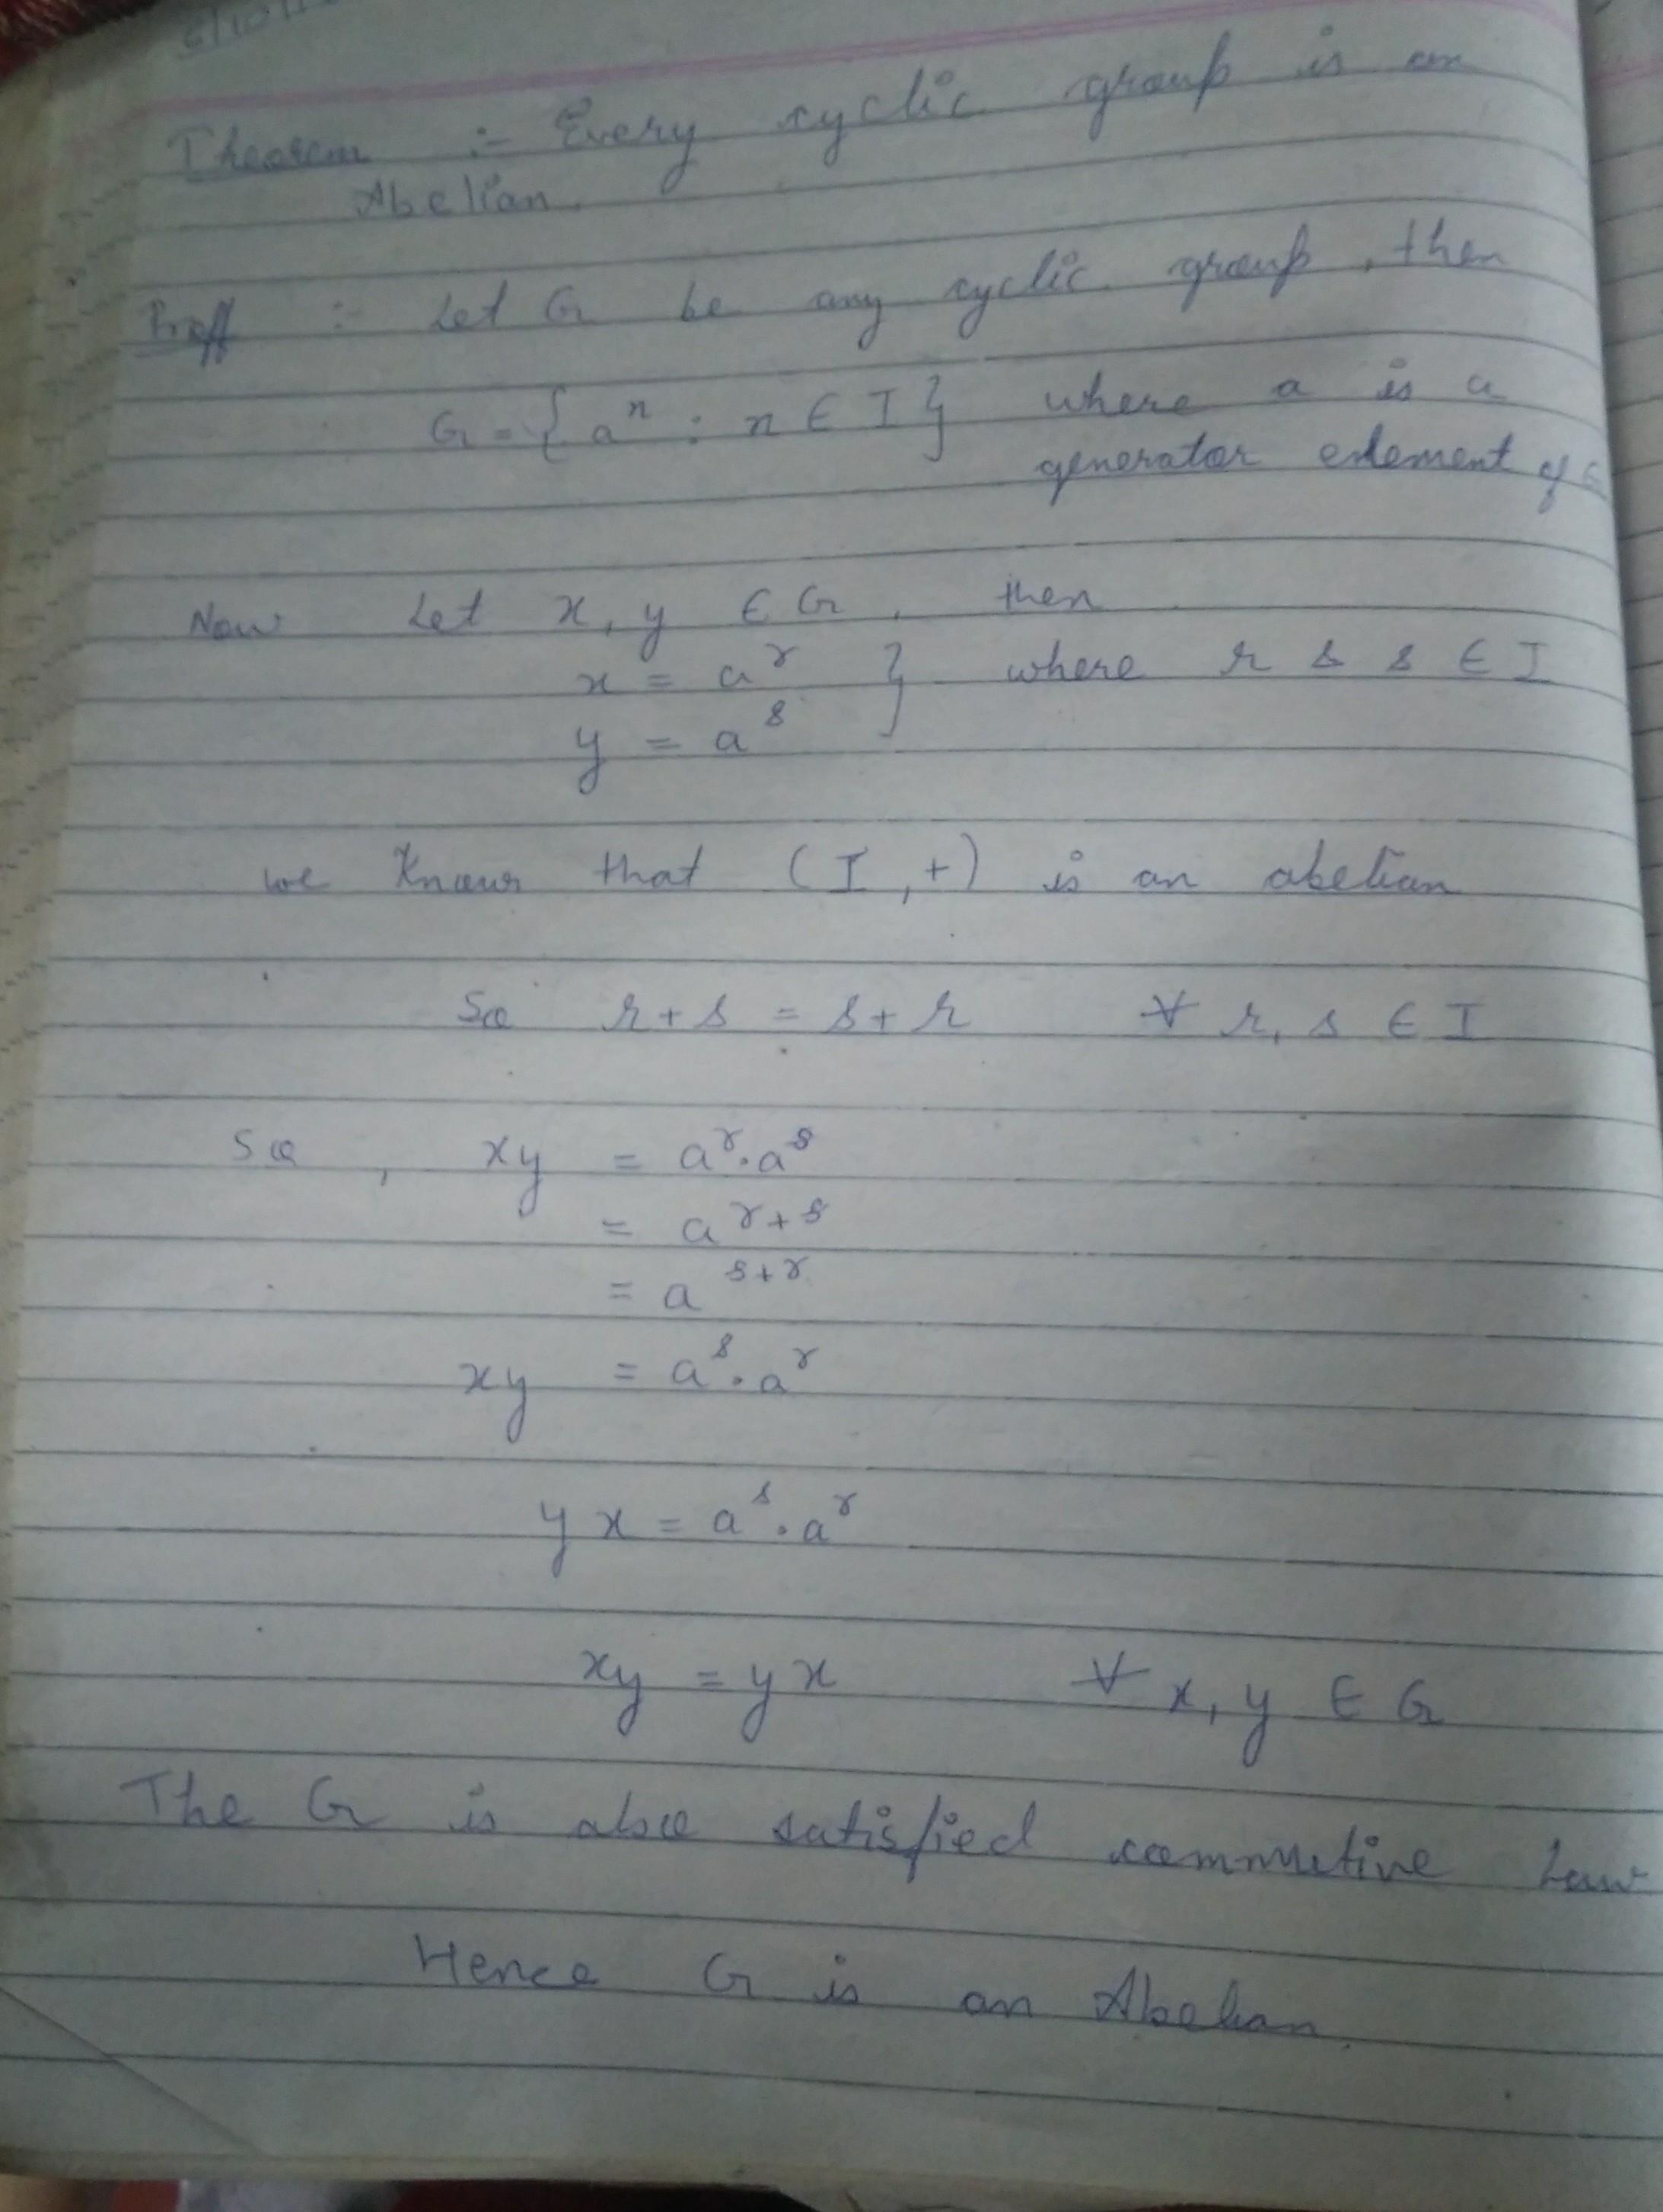 Theorem :- Every cyclic group is an
Abelian.
Proff :- Let G be any cyclic group, then
G = { aⁿ : n ∈ I } where a is a
generator element of G
Now Let x, y ∈ G, then
x = aʳ } where r & s ∈ I
y = aˢ
we Know that (I, +) is an abelian
So r + s = s + r ∀ r, s ∈ I
So, xy = aʳ · aˢ
= aʳ⁺ˢ
= aˢ⁺ʳ
xy = aˢ · aʳ
yx = aˢ · aʳ
xy = yx ∀ x, y ∈ G
The G is also satisfied commutive Law
Hence G is an Abelian